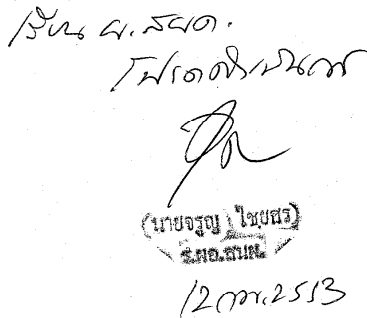 เรียน ผ.สยด.
โปรดดำเนินการ
(นายจรูญ ไชยศร)
ร.ผอ.สนผ.
12 กพ. 2553